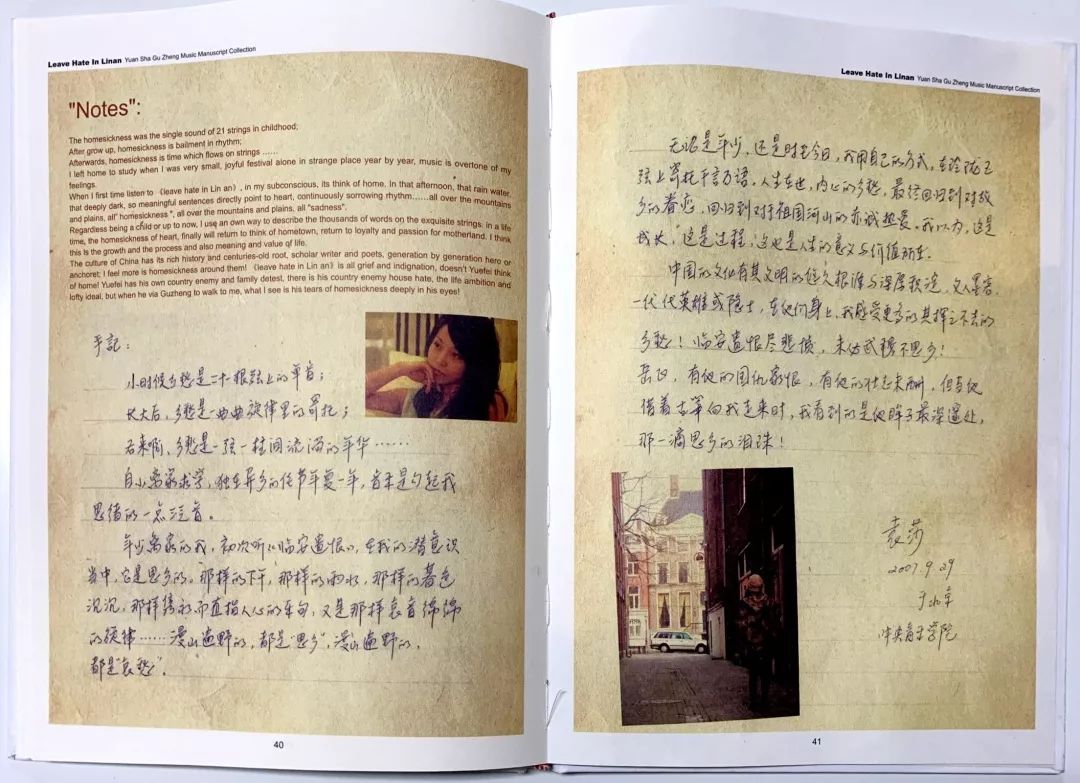 Leave Hate In Linan Yuan Sha Gu Zheng Music Manuscript Collection
"Notes":
The homesickness was the single sound of 21 strings in childhood;
After grow up, homesickness is bailment in rhythm;
Afterwards, homesickness is time which flows on strings ……
I left home to study when I was very small, joyful festival alone in strange place year by year, music is overtone of my
feelings.
When I first time listen to 《leave hate in Lin an》, in my subconscious, its think of home. In that afternoon, that rain water,
that deeply dark, so meaningful sentences directly point to heart, continuously sorrowing rhythm……all over the mountains
and plains, all" homesickness ", all over the mountains and plains, all "sadness".
Regardless being a child or up to now, I use an own way to describe the thousands of words on the exquisite strings. in a life
time, the homesickness of heart, finally will return to think of hometown, return to loyalty and passion for motherland. I think
this is the growth and the process and also meaning and value of life.
The culture of China has its rich history and centuries-old root, scholar writer and poets, generation by generation hero or
anchoret; I feel more is homesickness around them! 《leave hate in Lin an》is all grief and indignation, doesn't Yuefei think
of home! Yuefei has his own country enemy and family detest, there is his country enemy house hate, the life ambition and
lofty ideal, but when he via Guzheng to walk to me, what I see is his tears of homesickness deeply in his eyes!
手記：
小时候乡愁是二十一根弦上的单音；
长大后，乡愁是一曲曲旋律里的寄托；
后来啊，乡愁是一弦一柱间流淌的年华……
自小离家求学，独在异乡的佳节年复一年，音乐是勾起我
思绪的一点泛音。
年少离家的我，初次听《临安遗恨》，在我的潜意识
当中，它是思乡的。那样的下午，那样的雨水，那样的暮色
沉沉，那样隽永而直指人心的乐句，又是那样哀音绵绵
的旋律……漫山遍野的，都是"思乡"，漫山遍野的，
都是"哀愁"。
40
Leave Hate In Linan Yuan Sha Gu Zheng Music Manuscript Collection
无论是年少，还是时至今日，我用自己的方式，在玲珑之
弦上寄托千言万语。人生在世，内心的乡愁，最终回归到对故
乡的眷恋，回归到对祖国河山的赤诚热爱。我以为，这是
成长，这是过程，这也是人生的意义与价值所在。
中国的文化有其文明的悠久根源与深厚软淀，文人墨客，
一代代英雄或隐士，在他们身上，我感受更多的是挥之不去的
乡愁！临安遗恨尽悲愤，未必武穆不思乡！
岳飞，有他的国仇家恨，有他的壮志未酬，但当他
借着古筝向我走来时，我看到的是他眸子最深邃处，
那一滴思乡的泪珠！
袁莎
2007.9.29
于北京
中央音乐学院
41